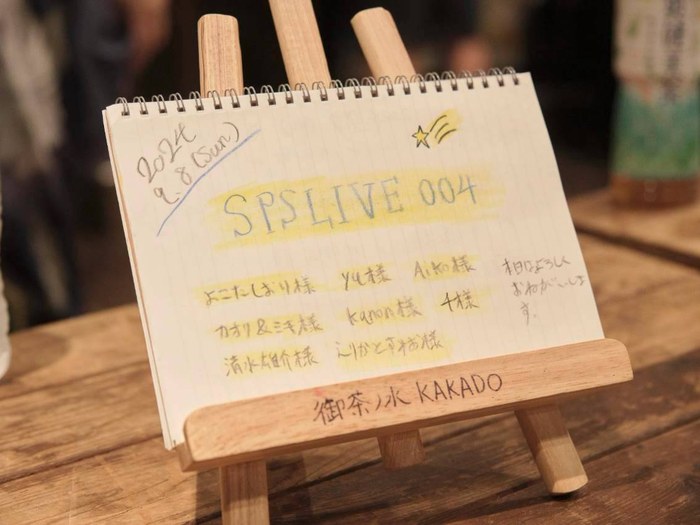 2024
9.8(sun)
SPSLIVE 004
よこたしおり様 yu様 Aiko様
カオリ&ミキ様 kanon様 千様
清水雄介様 えりかと
本日はよろしく
おねがいしま
す。
御茶ノ水 KAKADO